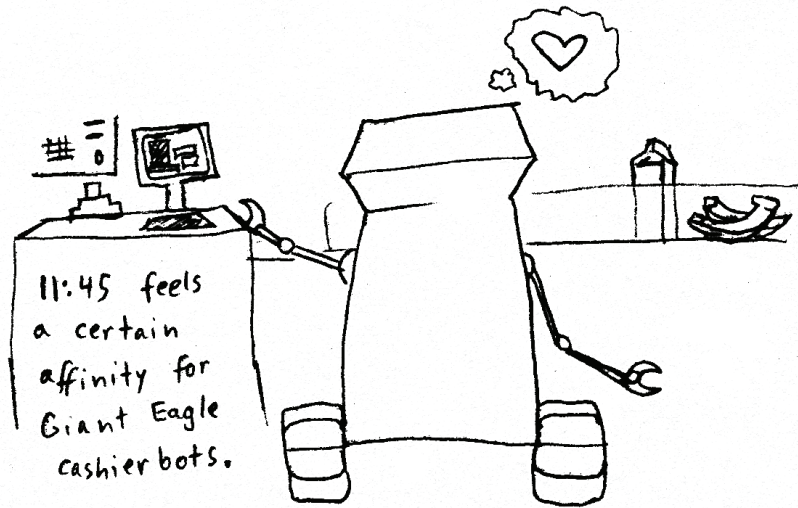 11:45 feels
a certain
affinity for
Giant Eagle
cashier bots.